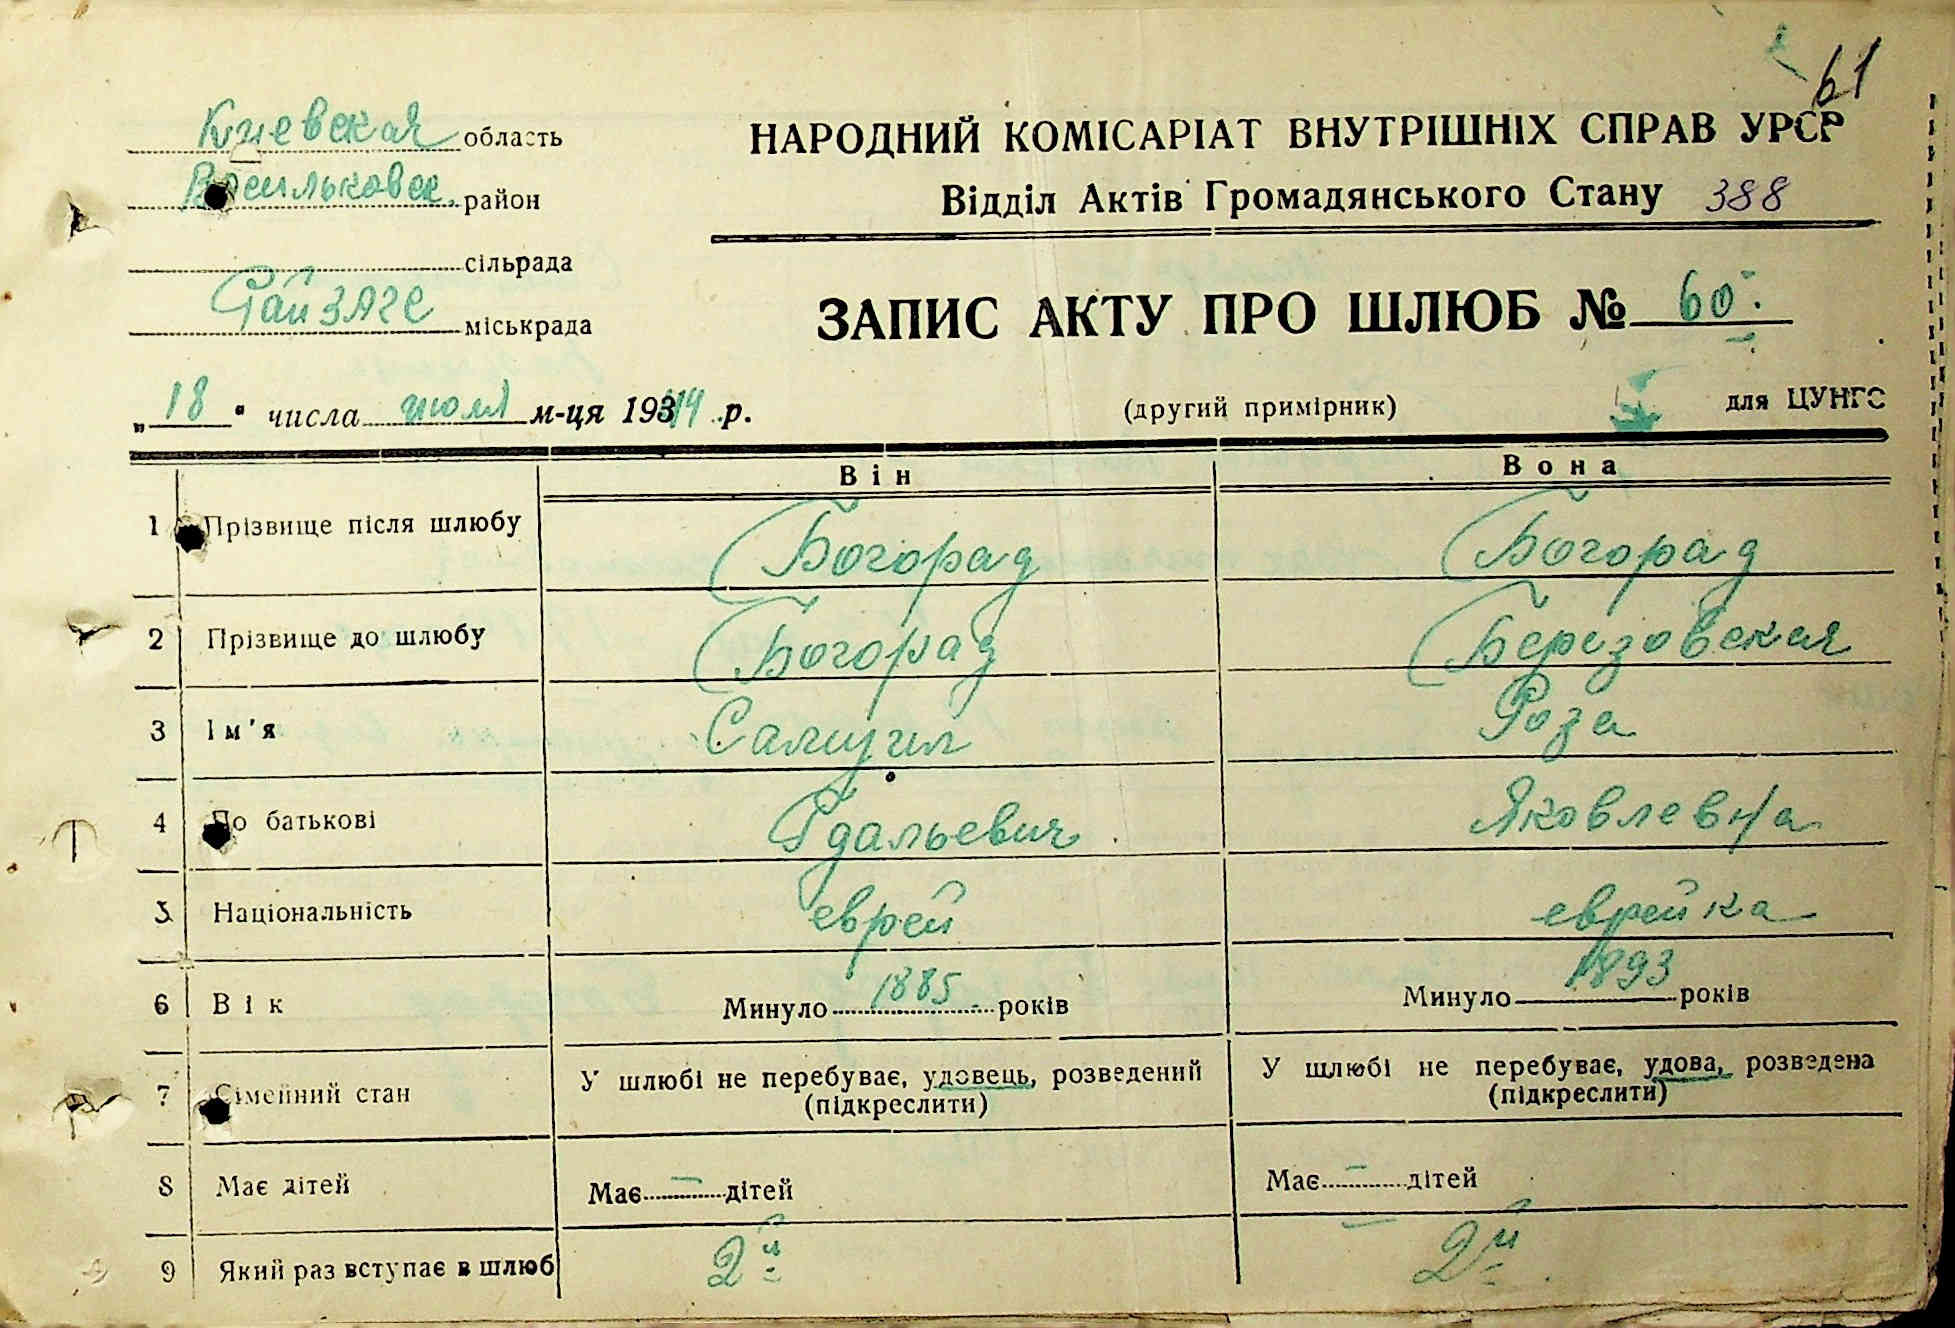 61
Киевская область
Васильковск. район
сільрада
РайЗАГС міськрада
НАРОДНИЙ КОМІСАРІАТ ВНУТРІШНІХ СПРАВ УРСР
Відділ Актів Громадянського Стану 388
ЗАПИС АКТУ ПРО ШЛЮБ № 60
„18" числа июля м-ця 1944 р.
(другий примірник)
для ЦУНГО
Він Вона
1 Прізвище після шлюбу Богорад Богорад
2 Прізвище до шлюбу Богорад Березовская
3 Ім'я Самуил Роза
4 По батькові Гдальевич Яковлевна
5 Національність еврей еврейка
6 Вік Минуло 1885 років Минуло 1893 років
7 Сімейний стан У шлюбі не перебуває, удовець, розведений У шлюбі не перебуває, удова, розведена
(підкреслити) (підкреслити)
8 Має дітей Має — дітей Має — дітей
9 Який раз вступає в шлюб 2й 2й